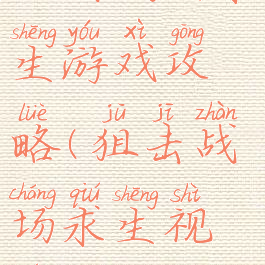 shēng yóu xì gōng
生游戏攻
lüè jū jī zhàn
略(狙击战
cháng qiú shēng shì
场求生视